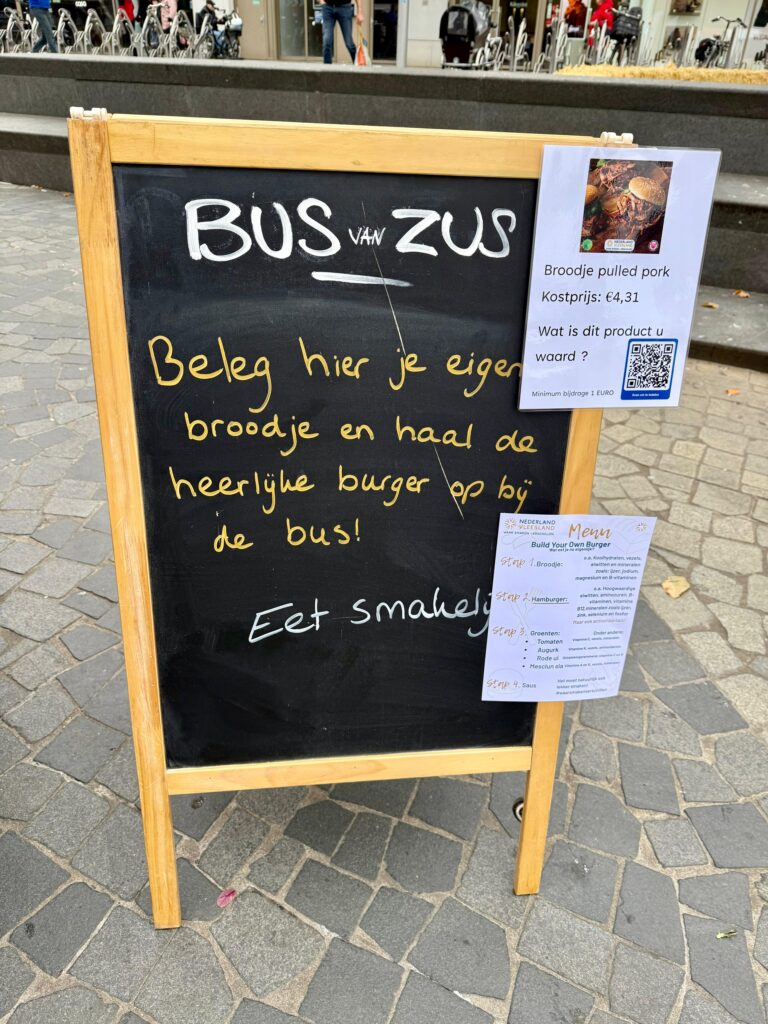 BUS VAN ZUS
Beleg hier je eigen
broodje en haal de
heerlijke burger op bij
de bus!
Eet smakelij
NEDERLAND
VLEESLAND
Broodje pulled pork
Kostprijs: €4,31
Wat is dit product u
waard ?
Minimum bijdrage 1 EURO
NEDERLAND
VLEESLAND
Menu
Build Your Own Burger
Wat eet je nu eigenlijk?
Stap 1. Broodje:
o.a. Koolhydraten, vezels,
eiwitten en mineralen
zoals: ijzer, jodium,
magnesium en B-vitaminen
Stap 2. Hamburger:
o.a. Hoogwaardige
eiwitten, aminozuren, B-
vitaminen, vitamine
B12, mineralen zoals ijzer,
zink, selenium en fosfor
Stap 3. Groenten:
Onder andere:
• Tomaten
• Augurk
• Rode ui
• Mesclun sla
Stap 4. Saus
Het moet natuurlijk ook
lekker smaken!